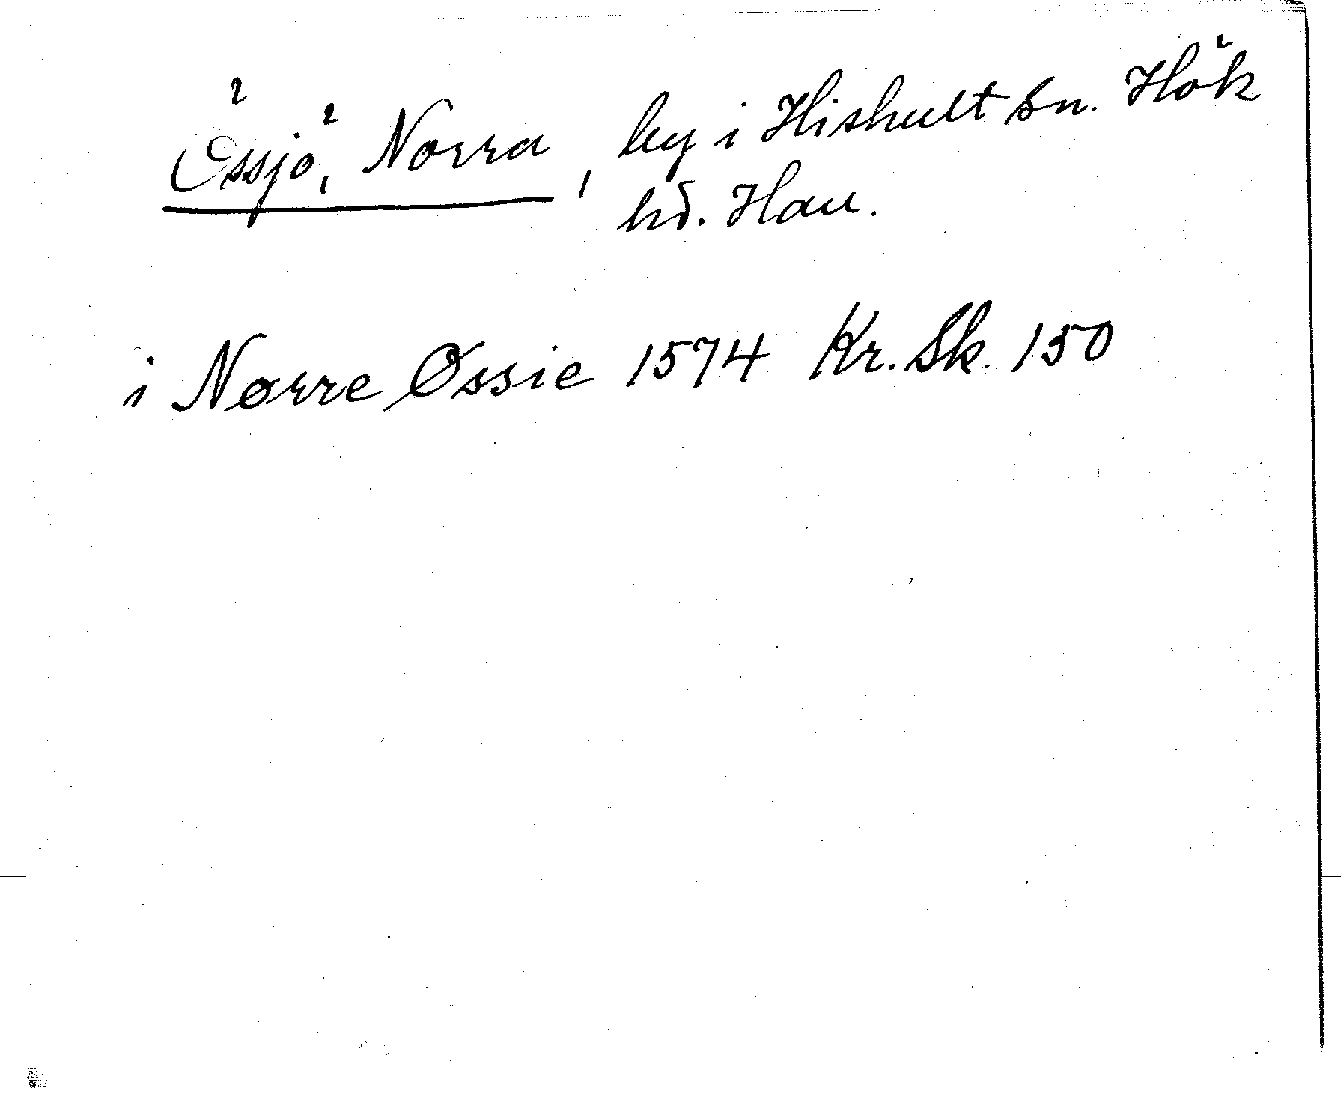 Össjö, Norra, by i Hishult sn. Hök
hd. Hall.
i Norre Øssie 1574 Kr. Sk. 150